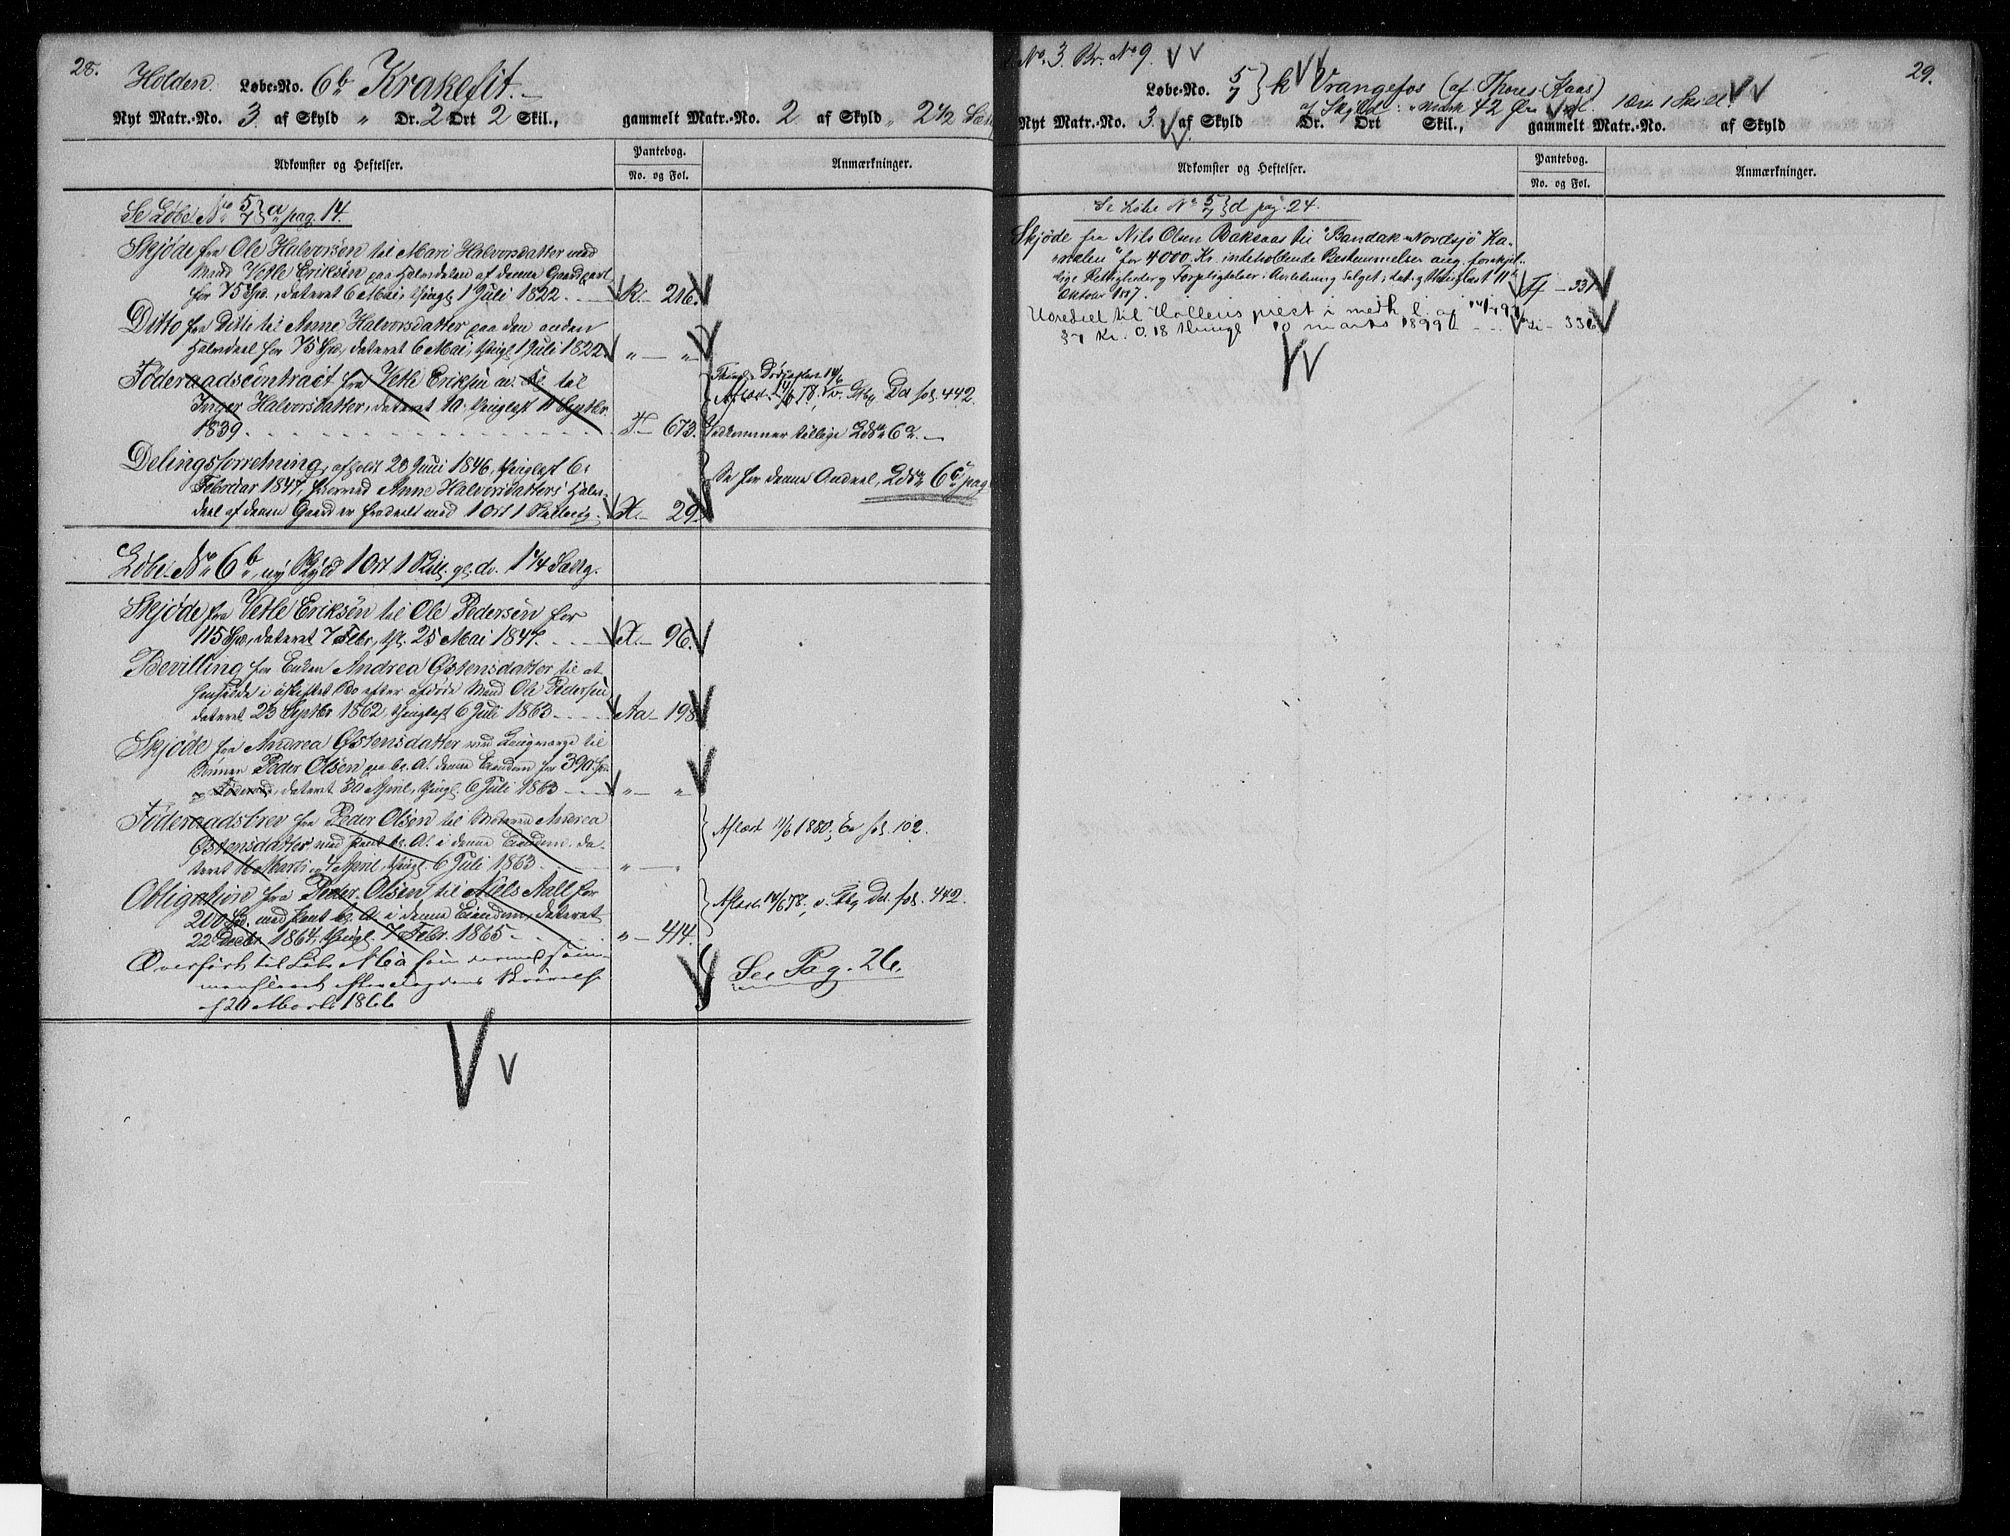 28.
Holden. Løbe-No. 6b Krakefit.
Nyt Matr.-No. 3 af Skyld " Dr. 2 Ort 2 Skil., gammelt Matr.-No. 2 af Skyld " 2 1/2
Adkomster og Heftelser.
Pantebog.
No. og Fol.
Anmærkninger.
Se Løbe No 5/7 } a pag. 14.
Skjøde fra Ole Halvorsen til Mari Halvorsdatter med
Mand Vetle Eriksøn paa Halvdelen af denne Gaardpart
for 75 Spd, dateret 6 Mai, thingl. 1 Juli 1822. K - 216.
Ditto fra Ditto til Anne Halvorsdatter paa den anden
Halvdeel for 75 Spd, dateret 6 Mai, thingl. 1 Juli 1822. " - "
Føderaadscontract fra Vetle Eriksøn til
Inger Halvorsdatter, dateret og thinglæst 11 Septbr.
1839. T - 673.
fol. 442.
Vedkommer tillige Lbn 6a.
Delingsforretning, afholdt 20 Juni 1846, thinglæst 6
Februar 1847, hvorved Anne Halvorsdatters Halv-
deel af denne Gaard er fradeelt med 1 Ort 1 Skilling. X. - 29.
Se for denne Andeel, Lbn 6c pag
Løbe No 6b, ny Skyld 1 Ort 1 Skill. gl. do. 1 1/4 Sætg.
Skjøde fra Vetle Eriksøn til Ole Pedersøn for
115 Spd, dateret 7 Febr., thgl. 25 Mai 1847. X. - 96.
Bevilling for Enken Andrea Østensdatter til at
hensidde i uskiftet Bo efter afdøde Mand Ole Pedersøn,
dateret 23 Septbr 1862, thinglæst 6 Juli 1863. Aa - 198
Skjøde fra Andrea Østensdatter med Laugværge til
Sønnen Peder Olsøn paa bl. A. denne Eiendom for 390 Spd
og Føderaad, dateret 30 April, thingl. 6 Juli 1863. " - "
Føderaadsbrev fra Peder Olsøn til Moderen Andrea
Østensdatter med Pant bl. A. i denne Eiendom, da-
teret 16 Marts og 4 April, thingl. 6 Juli 1863. " - "
Aflæst 11/6 1880, fol. 102.
Obligation fra Peder Olsøn til Niels Aall for
200 Spd. med Pant bl. A. i denne Eiendom, dateret
22 Decbr. 1864, thingl. 7 Febr. 1865. " - 414.
Aflæst 14/6 78, fol. 442.
Overført til Løbe No 6a som dermed sam-
menføiet efter Skrivelse
af 20 Marts 1866
See Pag. 26.
No. 3. Br. No 9.
29.
Løbe-No. 5/7 } k Vrangefos (af Thores Kaas)
af Skyld " Mark 42 Øre gl. 1 Ort 1 Skill.
Nyt Matr.-No. 3. af Skyld Dr. Ort Skil., gammelt Matr.-No. af Skyld
Adkomster og Heftelser.
Pantebog.
No. og Fol.
Anmærkninger.
Se Løbe No 5/7 } d pag. 24.
Skjøde fra Nils Olsen Baksaas til "Bandak-Nordsjø" Ka-
nalen" for 4000 Kr. indeholdende Bestemmelser ang. forskjel-
lige Rettigheder og Forpligtelser i Anledning Salget; dat. og thinglæst 11te
Oktober 1887. - 331
til Hollens prest i medh.
37 Kr. 0.18 thingl 10 marts 1899 - 336